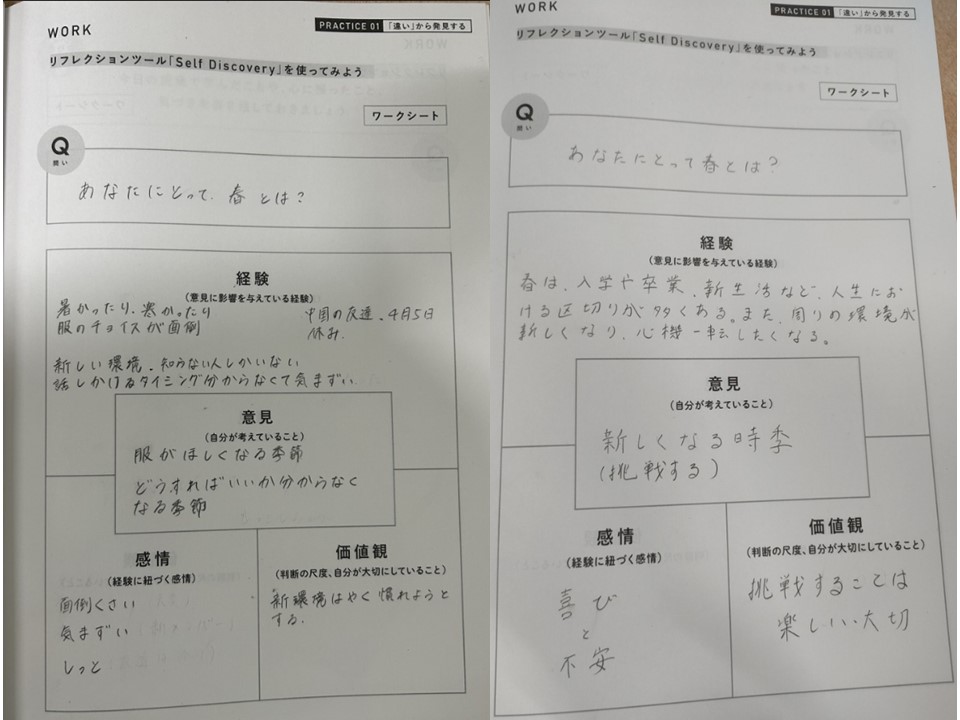 WORK
PRACTICE 01 「違い」から発見する
リフレクションツール「Self Discovery」を使ってみよう
ワークシート
Q
問い
あなたにとって、春とは?
経験
(意見に影響を与えている経験)
暑かったり、寒かったり
服のチョイスが面倒
中国の友達、4月5日
休み、
新しい環境、知らない人しかいない
話しかけるタイミング分からなくて気まずい、
意見
(自分が考えていること)
服がほしくなる季節
どうすればいいか分からなく
なる季節
感情
(経験に紐づく感情)
面倒くさい
気まずい
しっと
価値観
(判断の尺度、自分が大切にしていること)
新環境はやく慣れようと
する、
WORK
PRACTICE 01 「違い」から発見する
リフレクションツール「Self Discovery」を使ってみよう
ワークシート
Q
問い
あなたにとって春とは?
経験
(意見に影響を与えている経験)
春は、入学や卒業、新生活など、人生にお
ける区切りが多くある。また、周りの環境が
新しくなり、心機一転したくなる。
意見
(自分が考えていること)
新しくなる時季
(挑戦する)
感情
(経験に紐づく感情)
喜び
と
不安
価値観
(判断の尺度、自分が大切にしていること)
挑戦することは
楽しい・大切